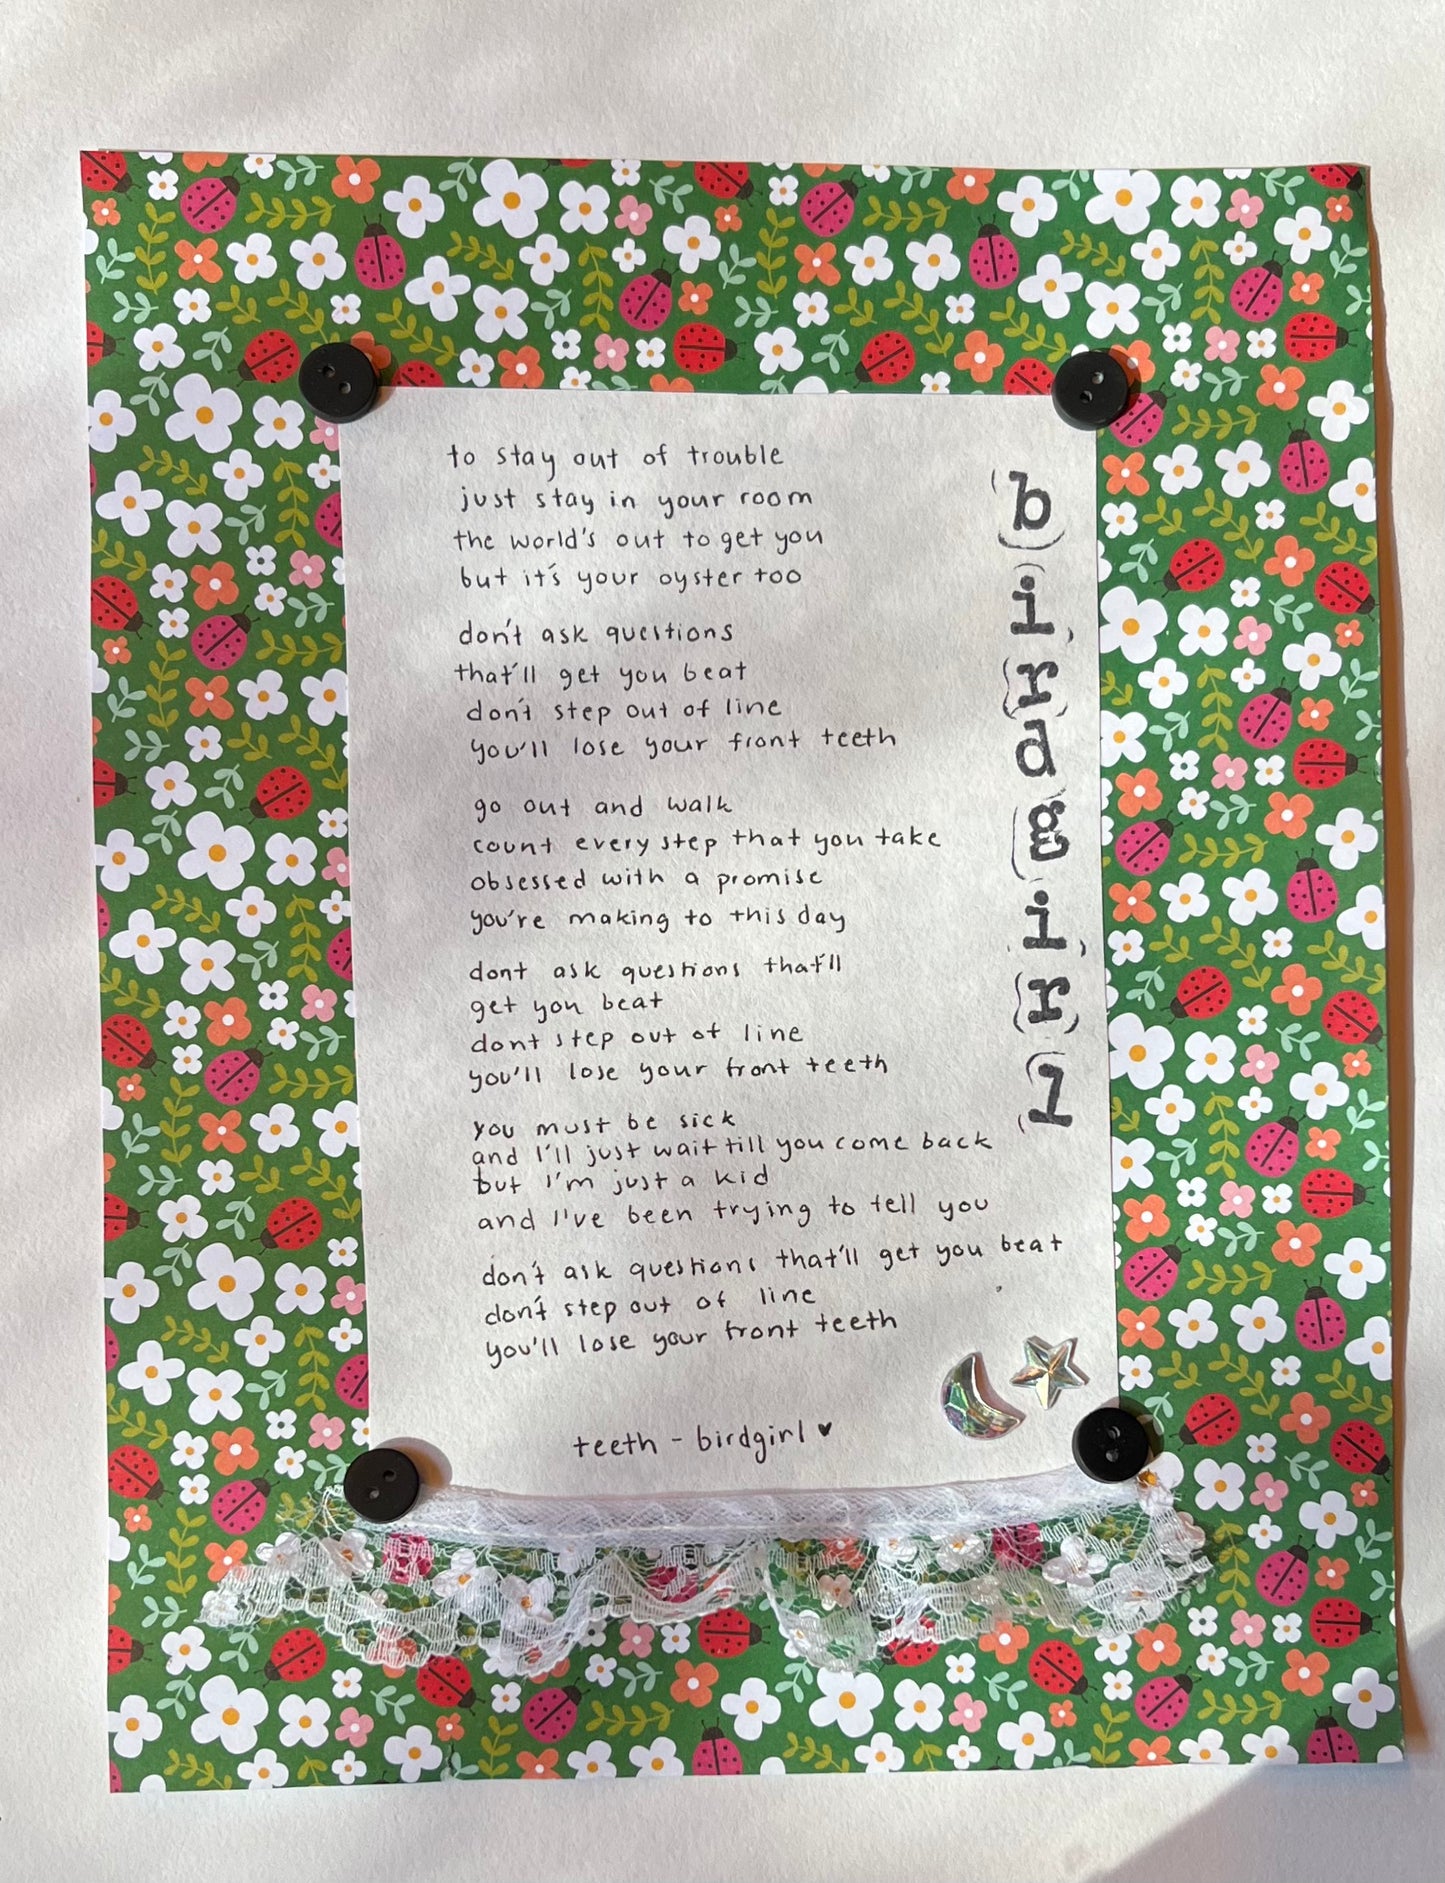 to stay out of trouble
just stay in your room
the world's out to get you
but it's your oyster too
don't ask questions
that'll get you beat
don't step out of line
you'll lose your front teeth
go out and walk
count every step that you take
obsessed with a promise
you're making to this day
dont ask questions that'll
get you beat
dont step out of line
you'll lose your front teeth
you must be sick
and I'll just wait till you come back
but I'm just a kid
and I've been trying to tell you
don't ask questions that'll get you beat
don't step out of line
you'll lose your front teeth
teeth - birdgirl ♥
birdgirl